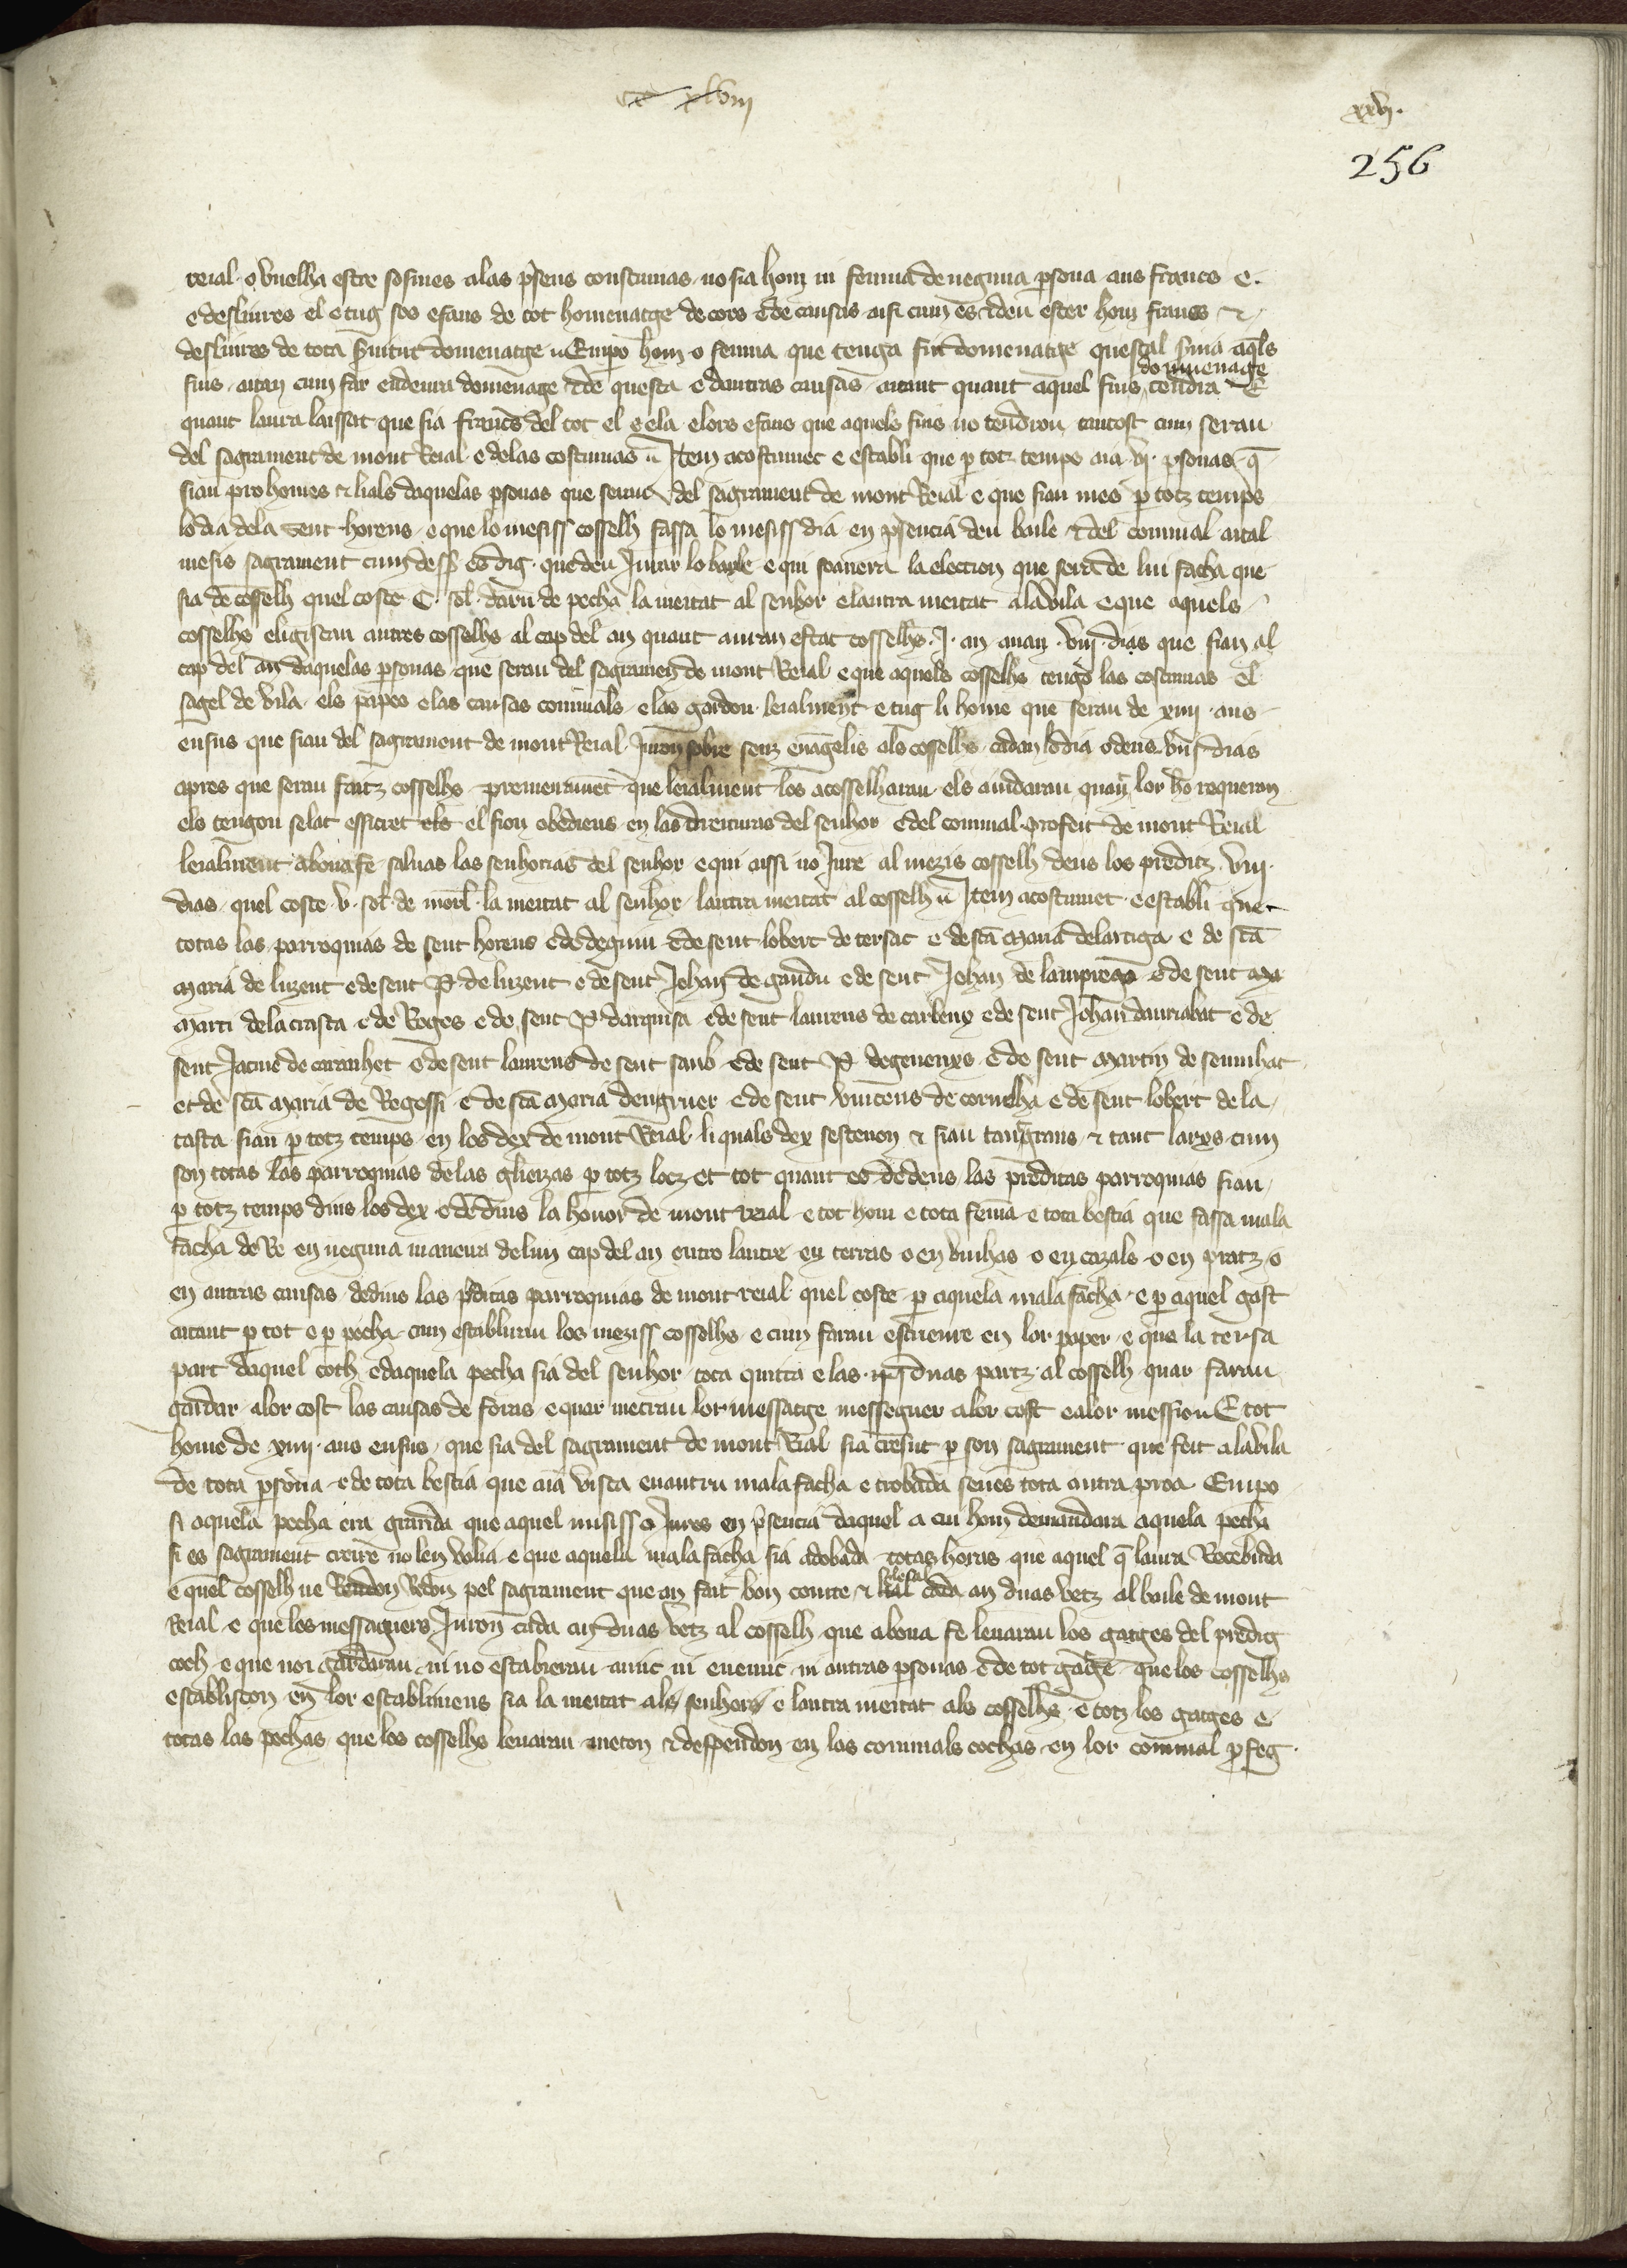 cc xlviii
xxvi.
256
reial o vuelha estre sosmes a las presens costumas no sia hom ni femna de neguna persona ans francs e
e desliures el e tug sos efans de tot homenatge de cors e de causas aisi cum es e deu ester hom francs et
desliures de tota servitut domenatge Empero hom o femna que tenga fiu domenatge questal serva aquels
fius aitan cum far en deura domenage e de questa e dautras causas aitant quant aquel fius tendra domenage E
quant laura laissat que sia francs del tot el e ela e lors efans que aquels fius no tendrou tantost cum serau
del sagrament de mont Reial e de las costumas Item acostumec e establi que per totz temps aia vi personas que
siau prohomes et lials daquelas personas que serau del sagrament de mont Reial e que siau mes per totz temps
lo dia de la sent horens e que lo mesiss cosselh fassa lo mesiss dia en presencia deu baile et del cominal aital
mesis sagrament cum desus es dig que deu Jurar lo bayle e qui soanera la election que sera de lui facha que
sia de cosselh quel coste C sol darn de pecha la meitat al senhor e lautra meitat a la vila e que aquels
cosselhs eligiscan autres cosselhs al cap del an quant auran estat cosselhs J an auan viii dias que sian al
cap del an daquelas personas que serau del sagrameg de mont Reial e que aquels cosselhs tengo las costumas el
sagel de vila els papes e las causas cominals e las gardon leialment e tug li home que serau de xiiii ans
ensus que siau del sagrament de mont Reial Juron sobre sens euangelis als cosselhs cadan lo dia o dens viii dias
apres que serau faitz cosselhs premeirament que leialment los acosselharau els aiudarau quan lor ho requeron
els tengon selat essicret els el sion obediens en las dreituras del senhor e del cominal profeit de mont Reial
leialment a bona fe saluas las senhorias del senhor e qui aissi no Jure al mezis cosselh dens los preditz viii
dias quel coste v sol de morl la meitat al senhor lautra meitat al cosselh Item acostumet e establi que
totas las parroquias de sent horens e de deguin e de sent lobert de tersac e de sta maria delartiga e de sta
maria de luzent e de sent P de luzent e de sent Johan de gaudu e de sent Johan de lampiegas e de sent ma
marti de lacrasta e de Roges e de sent P darquisa e de sent laurens de carbeny e de sent Johan dauriabat e de
sent Jacme de caranhet e de sent laurens de sent saub e de sent P degeuenxs e de sent martin de seumhac
et de sta maria de Regossi e de sta maria dengruer e de sent vincens de cornelha e de sent lobert de la
tasta siau per totz temps en los dex de mont Reial li quals dex sestenon et siau tan grans et tant larxs cum
son totas las parroquias de las glieizas per totz locz et tot quant es dedens las preditas parroquias siau
per totz temps dins los dex e dedins la honor de mont reial e tot hom e tota femna e tota bestia que fassa mala
facha de Re en neguna maneira de lun cap del an entro lautre en terras o en vinhas o en cazals o en pratz o
en autras causas dedins las preditas parroquias de mont reial quel coste per aquela mala facha e per aquel gast
aitant per tot e per pecha cum establiran los meziss cosselhs e cum farau escrieure en lor paper e que la tersa
part daquel coth e daquela pecha sia del senhor tota quitta e las duas partz al cosselh quar farau
gardar a lor cost las causas de foras e quar metrau lor messatge messeguer a lor cost e a lor mession E tot
home de xiiii ans ensus que sia del sagrament de mont Rial sia cresut per son sagrament que feit a la vila
de tota persona e de tota bestia que aia vista enantra mala facha e trobada senes tota autra proa Empo
si aquela pecha era granda que aquel misiss o Jures en presencia daquel a cui hom demandara aquela pecha
si es sagrament creire no len volia e que aquela mala facha sia adobada totas horas que aquel que laura Recebuda
e quel cosselh ne Rendon Redon pel sagrament que an fait bon comte et leial cada an duas vetz al baile de mont
Reial e que los messaguers Juron cada an duas vetz al cosselh que a bona fe leuarau los gatges del predig
coch e que noi gardarau ni no estabierau amic ni enemic ni autras personas e de tot gatge que los cosselhs
establiscon en lor establimens sia la meitat als senhors e lautra meitat als cosselhs e totz los gatges e
totas las pechas que los cosselhs leuarau meton et despendon en las cominals cochas en lor cominal profeg